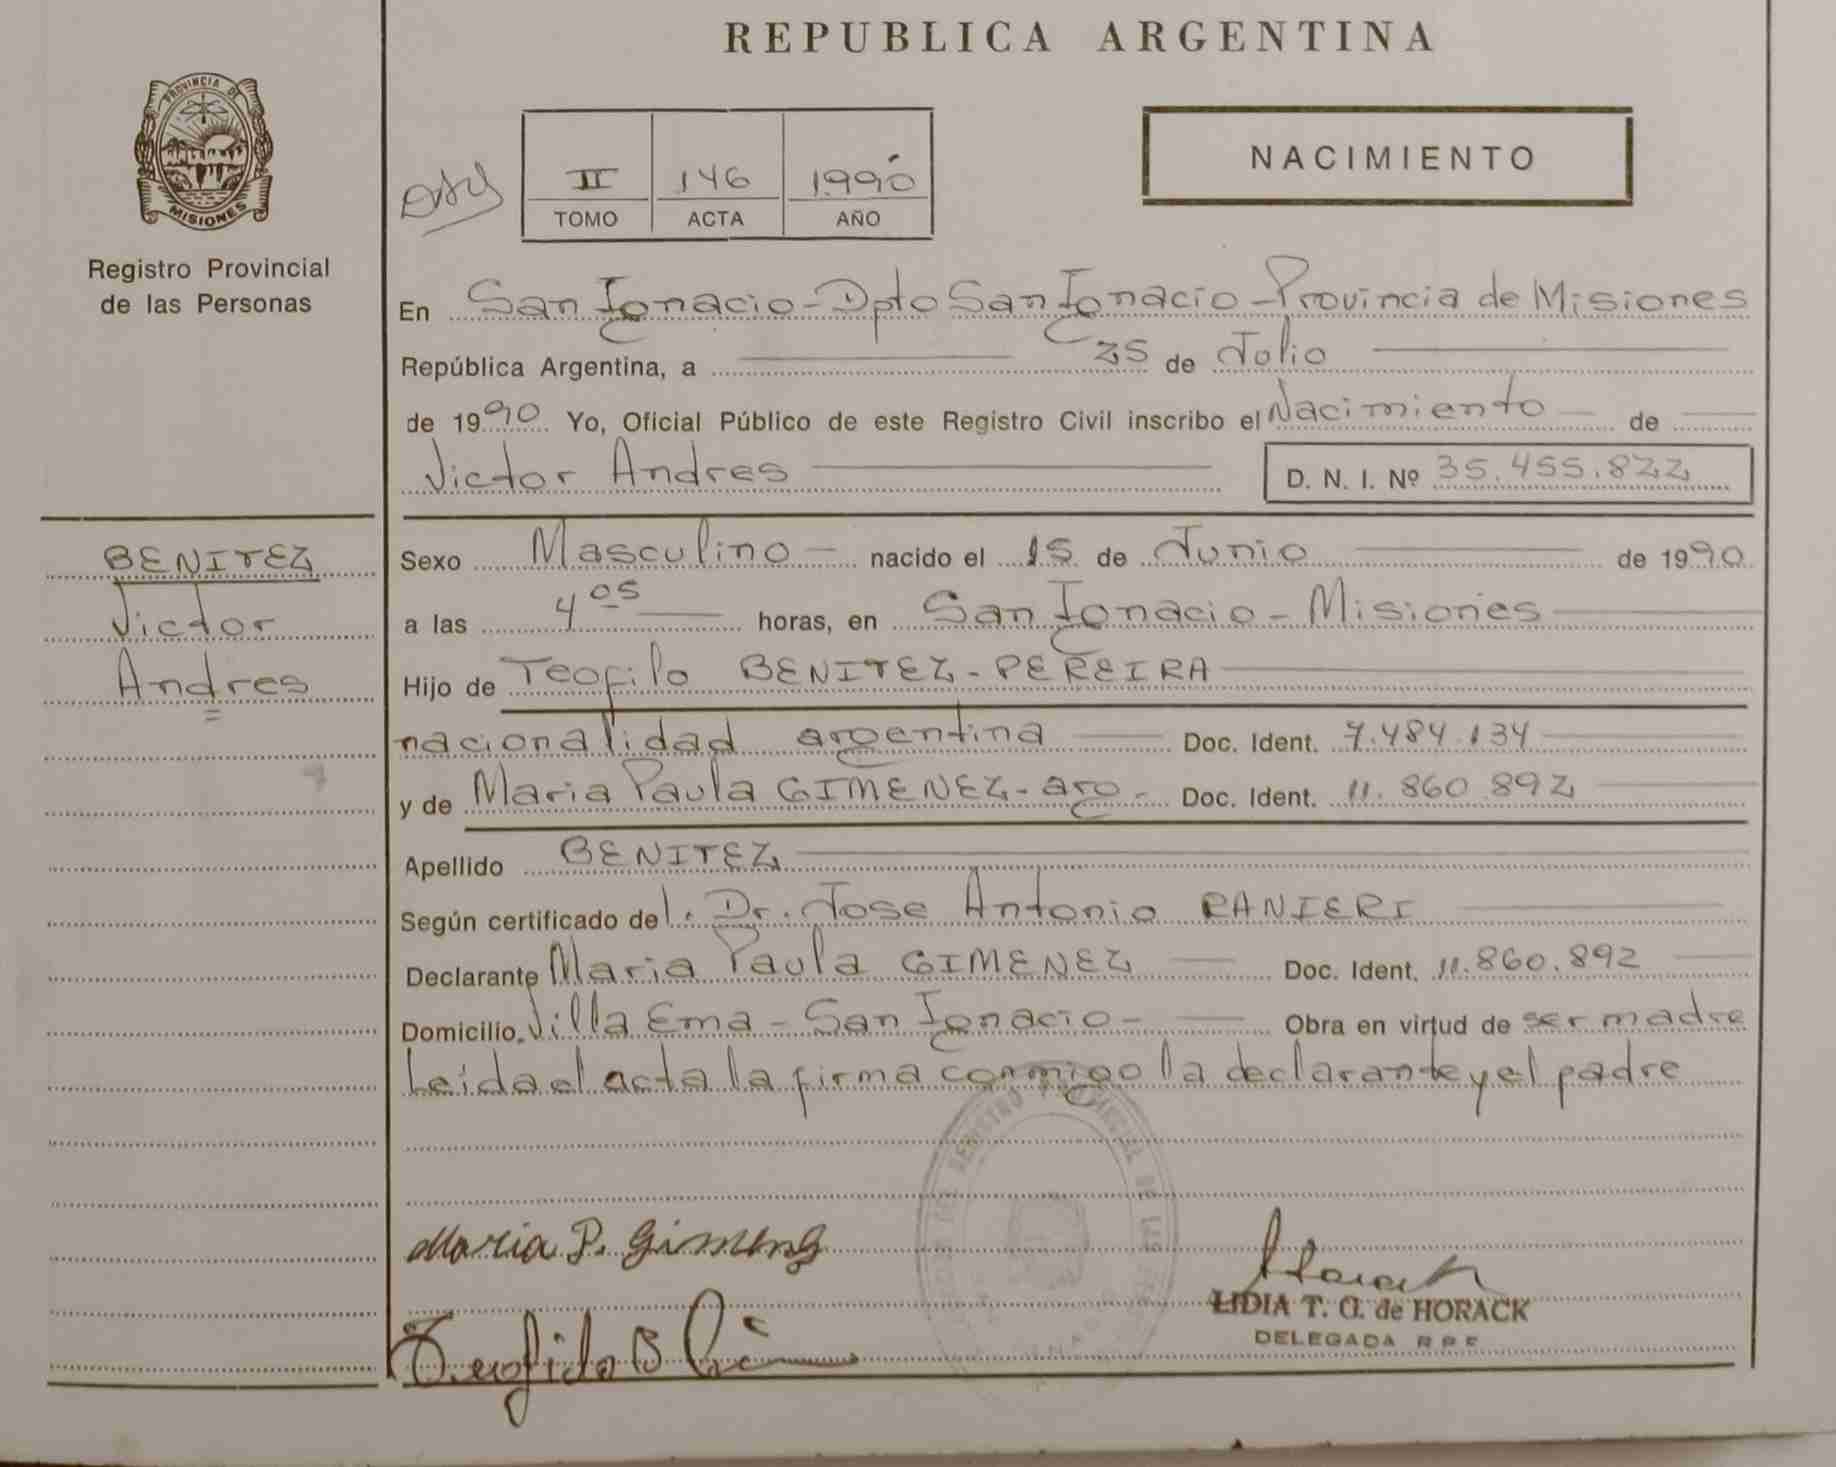 REPUBLICA ARGENTINA
PROVINCIA DE
MISIONES
Registro Provincial
de las Personas
II 146 1990
TOMO ACTA AÑO
NACIMIENTO
En San Ignacio - Dpto San Ignacio - Provincia de Misiones
República Argentina, a 25 de Julio
de 1990 Yo, Oficial Público de este Registro Civil inscribo el Nacimiento de
Victor Andres D. N. I. Nº 35.455.822
BENITEZ
Victor
Andres
Sexo Masculino nacido el 15 de Junio de 1990
a las 4 05 horas, en San Ignacio - Misiones
Hijo de Teofilo BENITEZ - PEREIRA
nacionalidad argentina Doc. Ident. 7.484.134
y de Maria Paula GIMENEZ - arg - Doc. Ident. 11.860.892
Apellido BENITEZ
Según certificado del. Dr. Jose Antonio RANIERI
Declarante Maria Paula GIMENEZ Doc. Ident. 11.860.892
Domicilio. Villa Ema - San Ignacio - Obra en virtud de ser madre
Leida el acta la firma conmigo la declarante y el padre
Maria P. Gimenez
Horack
LIDIA T. G. de HORACK
DELEGADA R.P.P.
Teofilo B